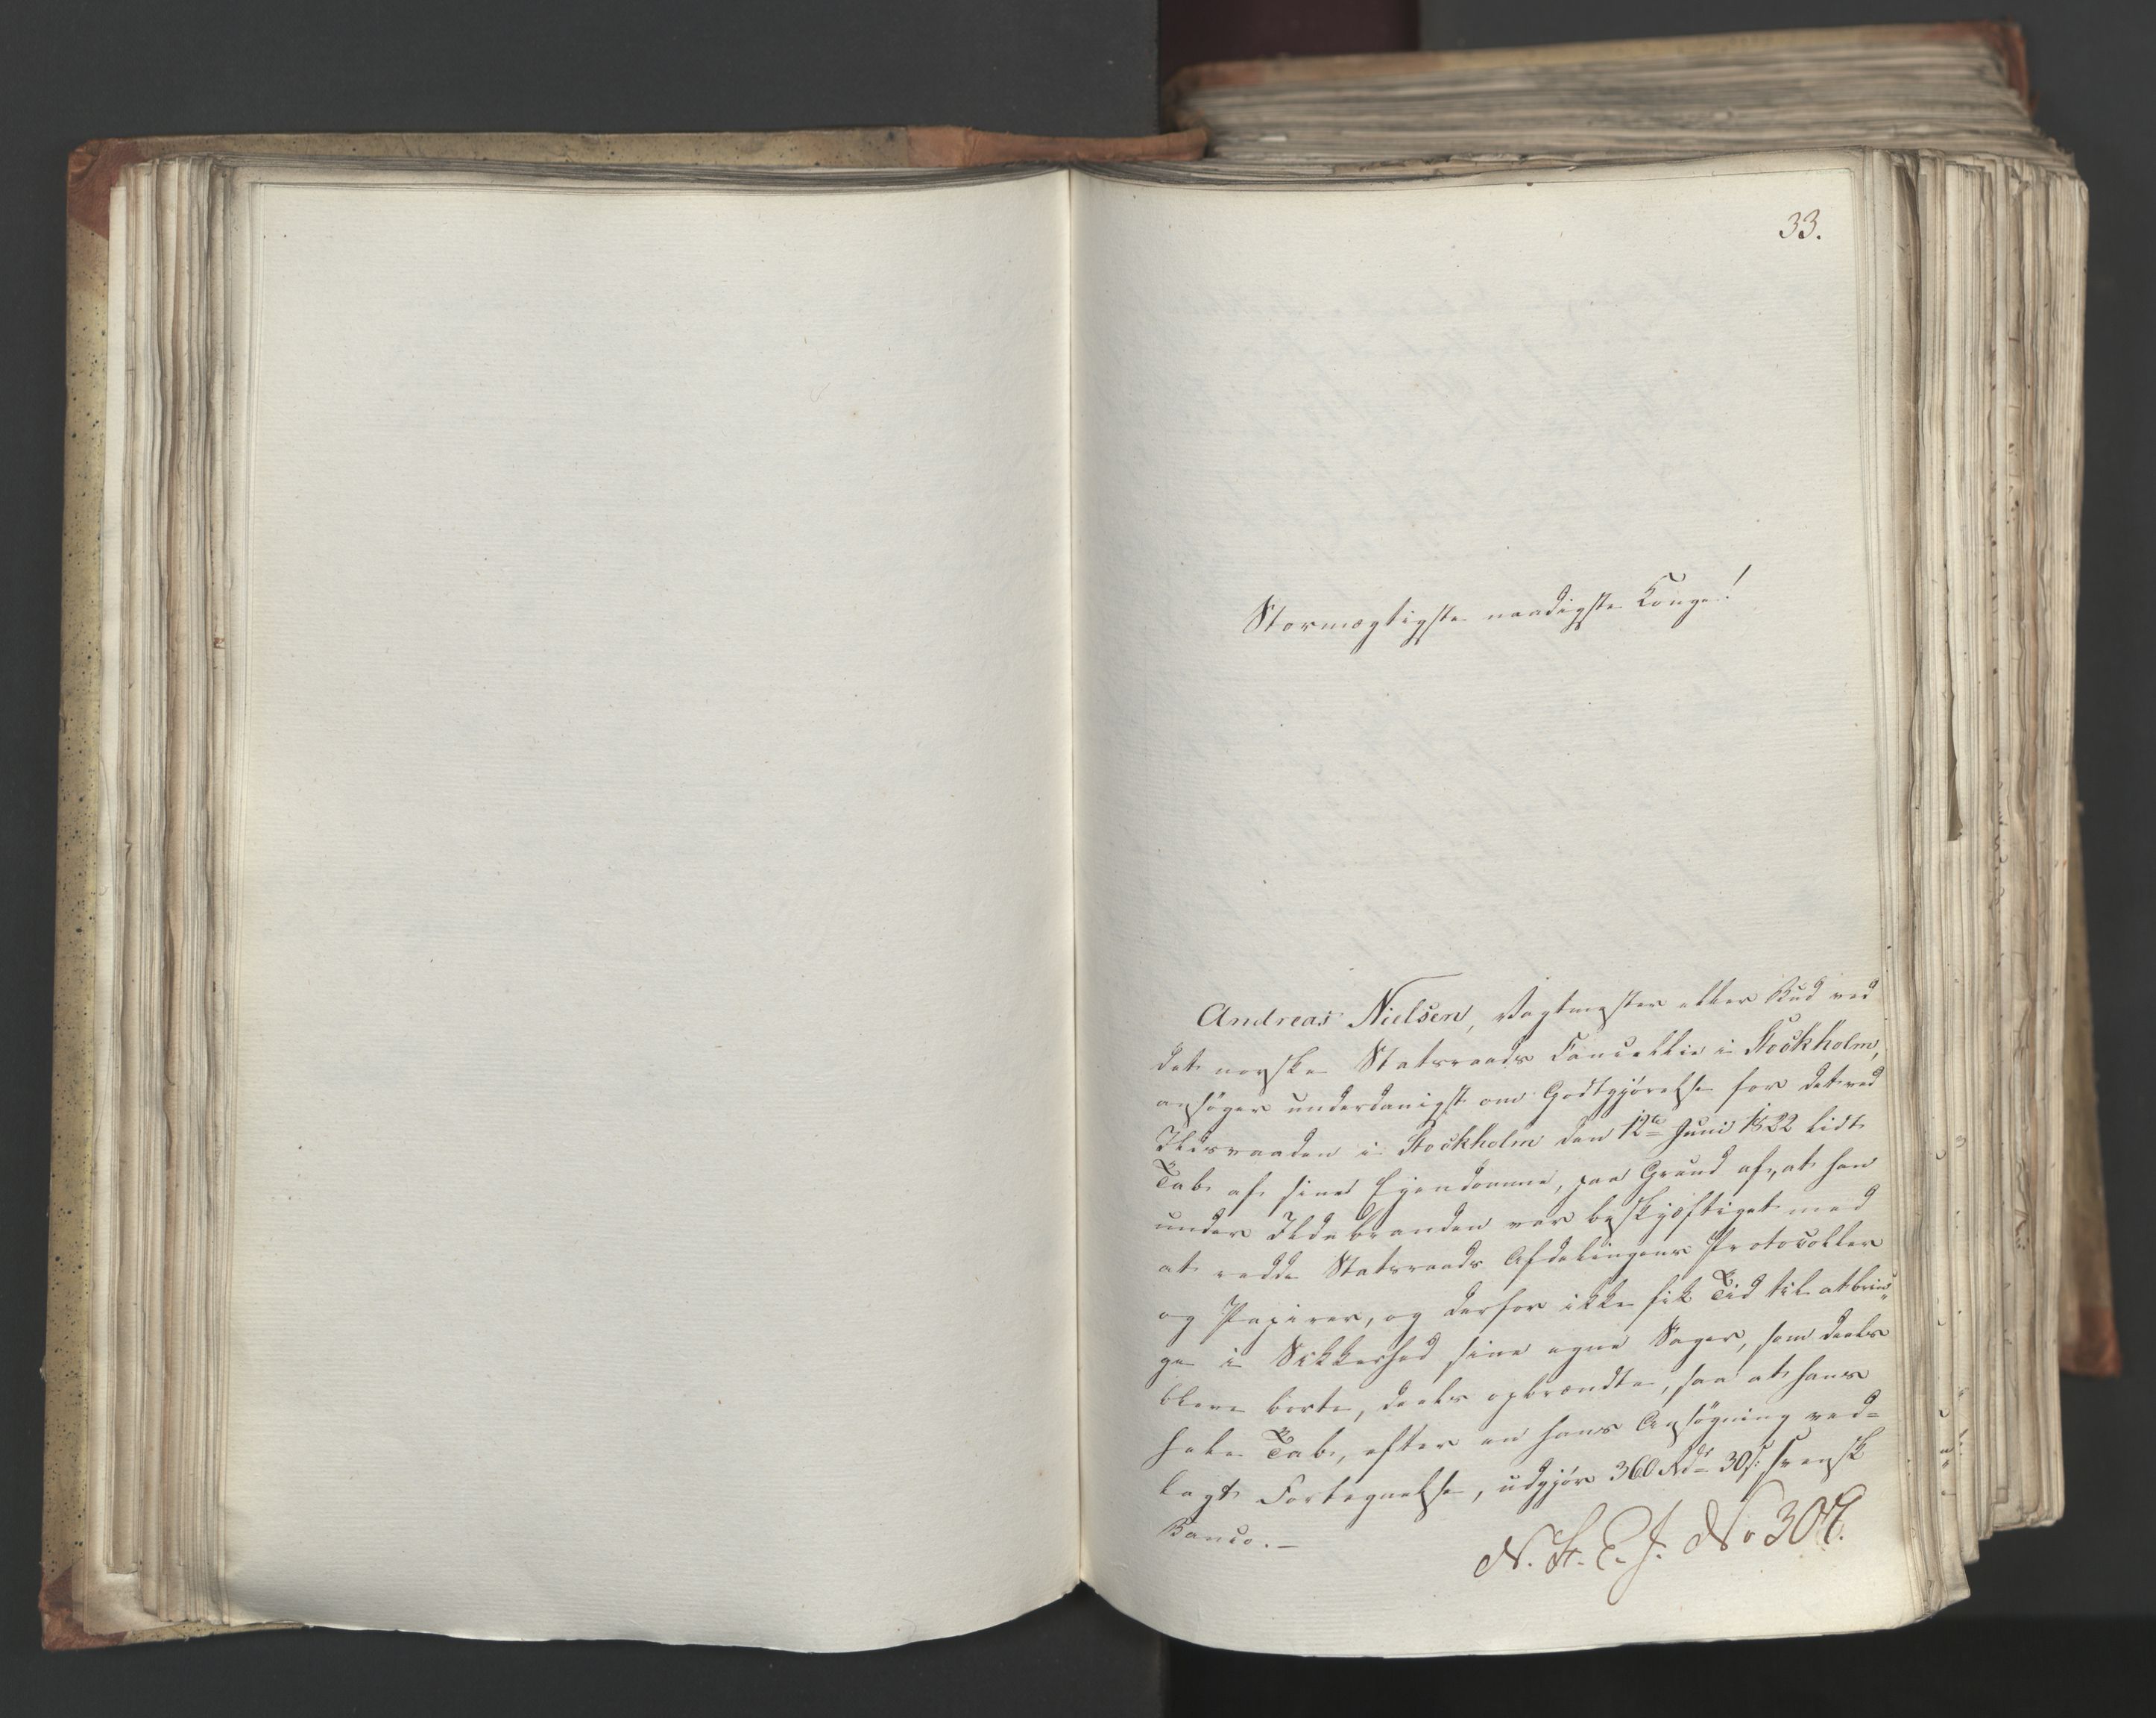 33.
Stormægtigste naadigste Konge!
Andreas Nielsen, Vagtmester eller Bud ved
det norske Statsraads Cancellie i Stockholm,
ansøger underdanigst om Godtgjørelse for det ved
Ildsvaaden i Stockholm den 12te Juni 1822 lidte
Tab af sine Ejendomme, paa Grund af, at han
under Ildebranden var beskjæftiget med
at redde Statsraads Afdelingens Protocoller
og Papirer, og derfor ikke fik Tid til at brin-
ge i Sikkerhed sine egne Sager, som deels
bleve borte, deels opbrændte, saa at hans
hele Tab, efter en hans Ansøgning ved-
lagt Fortegnelse, udgjør 360 Rdr 30 s. svensk
Banco. –
N. St. E. J. No